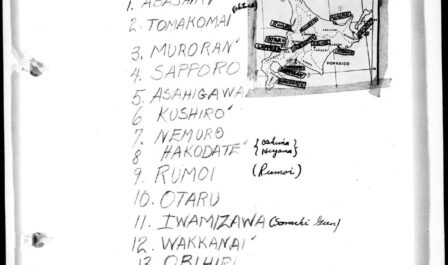 1. ABASHIRI
2. TOMAKOMAI
3. MURORAN
4. SAPPORO
5. ASAHIGAWA
6. KUSHIRO
7. NEMURO
8 HAKODATE {Oshima Hiyama}
9. RUMOI (Rumoi)
10. OTARU
11. IWAMIZAWA (Sorachi Gun)
12. WAKKANAI
13 OBIHIRI
HOKKAIDO